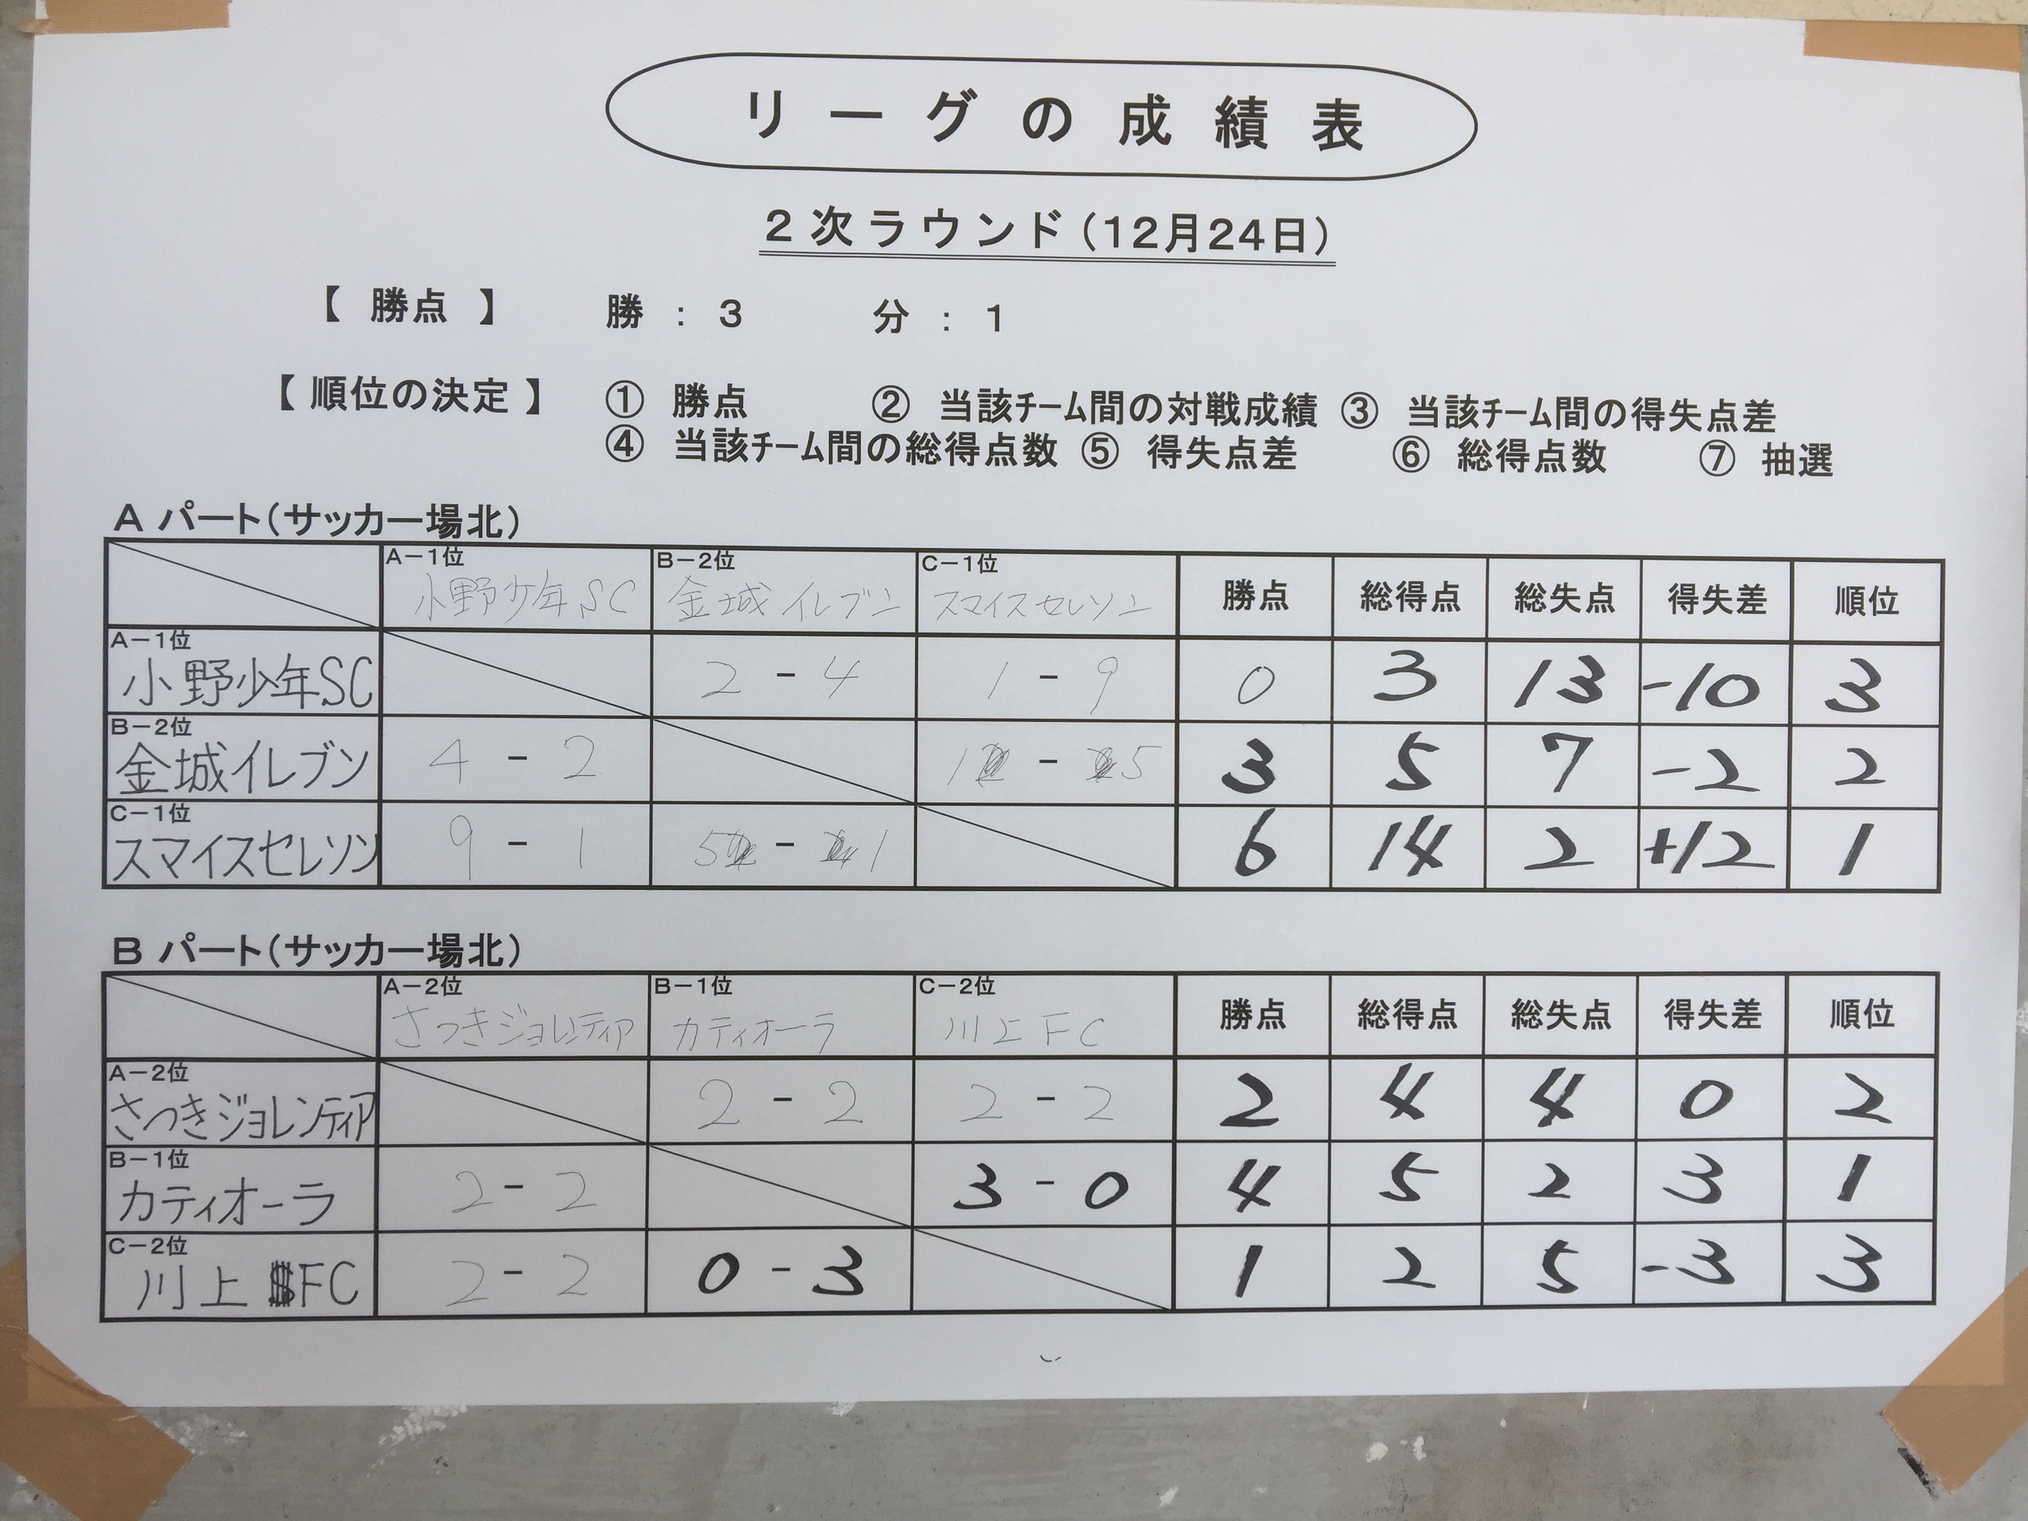 リーグの成績表
2次ラウンド(12月24日)
【 勝点 】 勝 : 3 分 : 1
【 順位の決定 】 ① 勝点 ② 当該チーム間の対戦成績 ③ 当該チーム間の得失点差
④ 当該チーム間の総得点数 ⑤ 得失点差 ⑥ 総得点数 ⑦ 抽選
A パート(サッカー場北)
A-1位 B-2位 C-1位
小野少年SC 金城イレブン スマイスセレソン 勝点 総得点 総失点 得失差 順位
A-1位
小野少年SC 2 - 4 1 - 9 0 3 13 -10 3
B-2位
金城イレブン 4 - 2 1 - 5 3 5 7 -2 2
C-1位
スマイスセレソン 9 - 1 5 - 1 6 14 2 +12 1
B パート(サッカー場北)
A-2位 B-1位 C-2位
さつきジョレンティア カティオーラ 川上FC 勝点 総得点 総失点 得失差 順位
A-2位
さつきジョレンティア 2 - 2 2 - 2 2 4 4 0 2
B-1位
カティオーラ 2 - 2 3 - 0 4 5 2 3 1
C-2位
川上 FC 2 - 2 0 - 3 1 2 5 -3 3